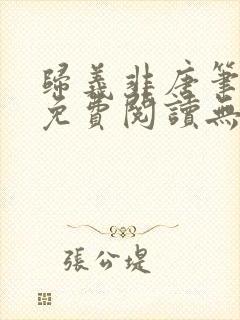 歸義非唐筆
免費閱讀無
張公堤